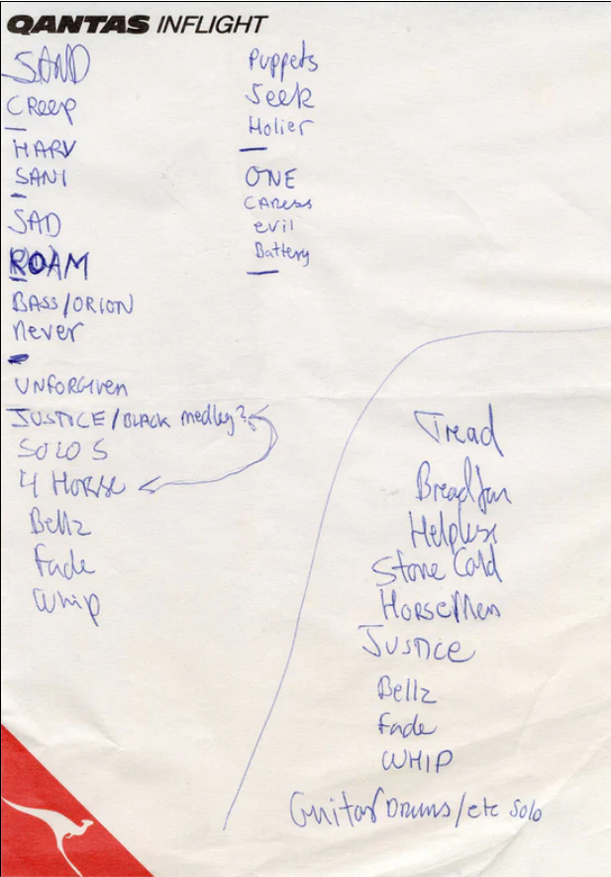 QANTAS INFLIGHT
SAND
Creep
HARV
SANI
SAD
ROAM
BASS/ORION
Never
UNFORGIVEN
JUSTICE/BLACK medley?
SOLOS
4 HORSE
Bellz
Fade
Whip
Puppets
Seek
Holier
ONE
CAREss
evil
Battery
Tread
Breadfan
Helpless
Stone Cold
HorseMen
JUSTICE
Bellz
Fade
WHIP
Guitar Drums/etc Solo